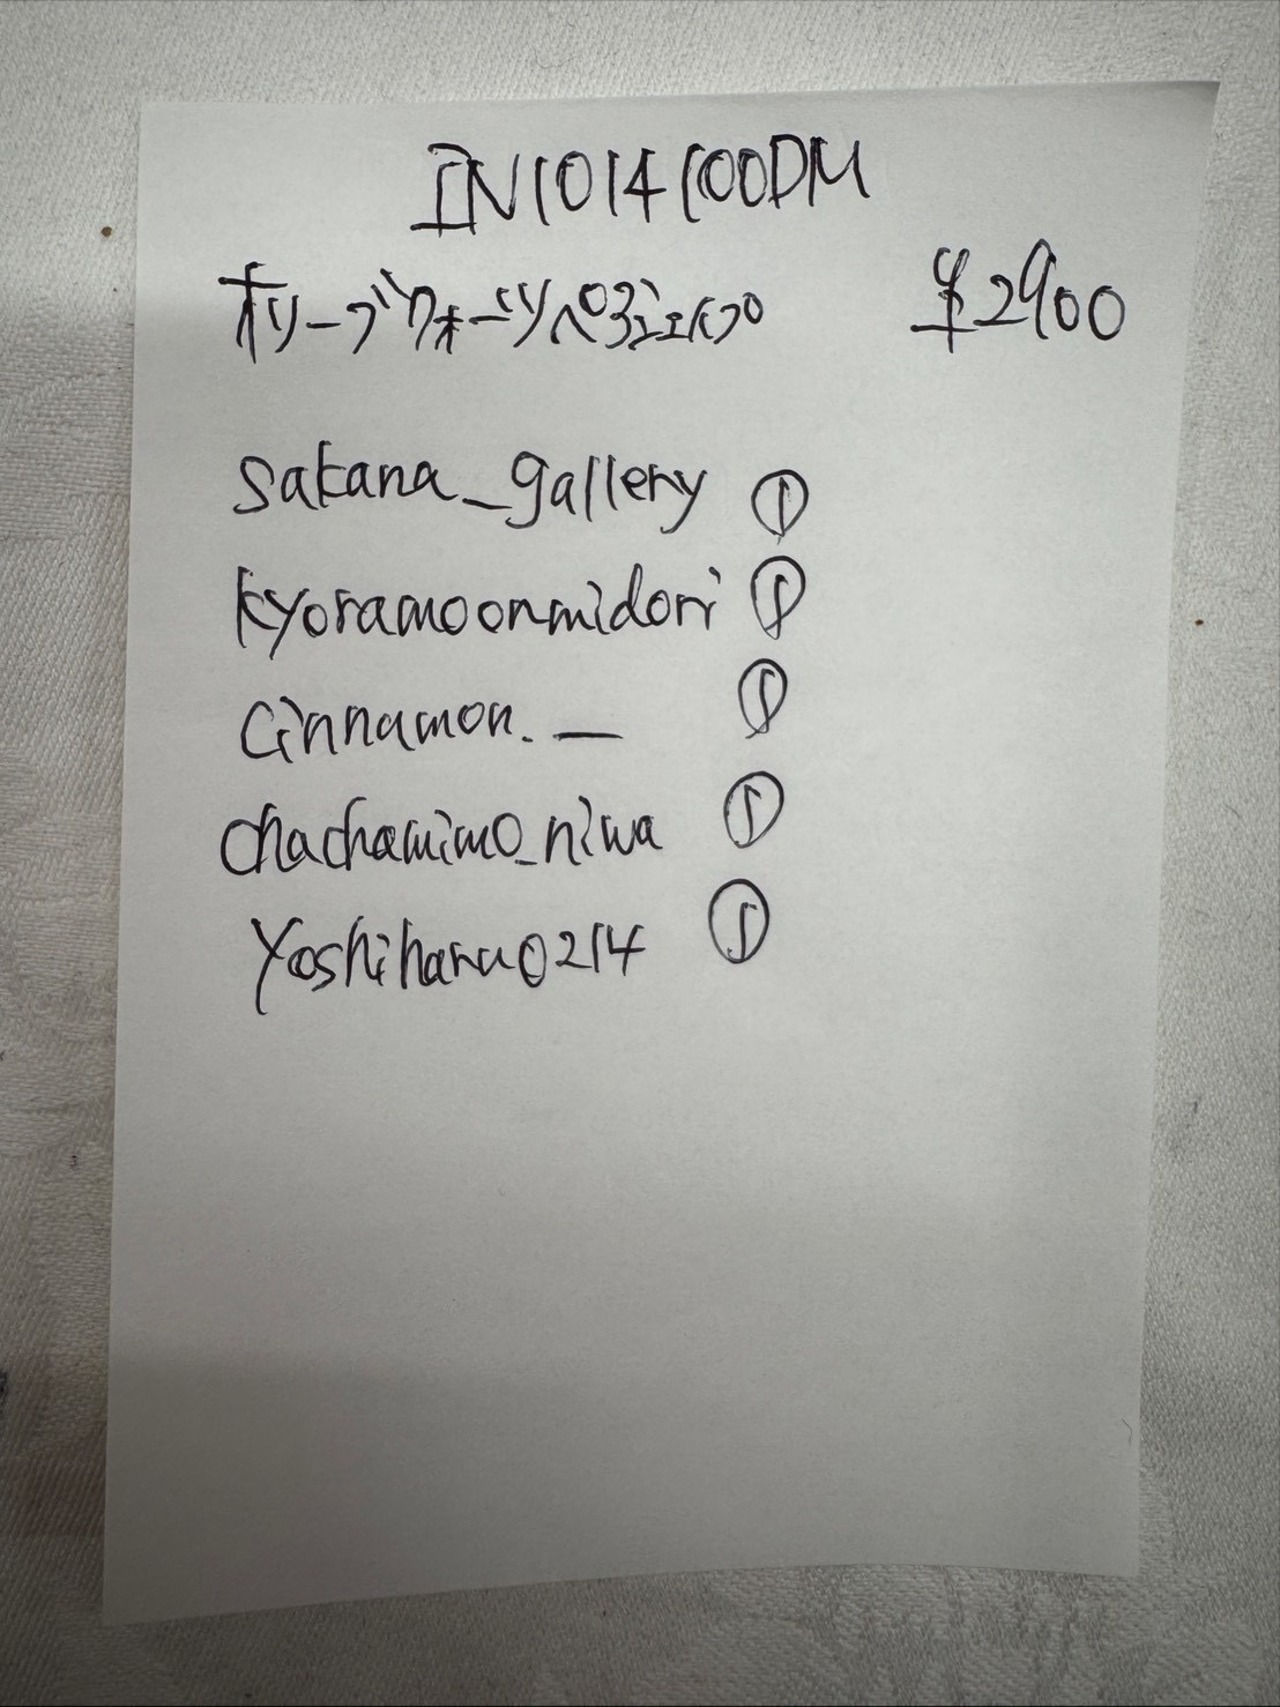 IN1014100DM
オリーブクォーツペタシェイプ ¥2900
sakana_gallery ①
kyoramoonmidori ①
cinnamon._ ①
chachamimo_niwa ①
yoshiharu0214 ①